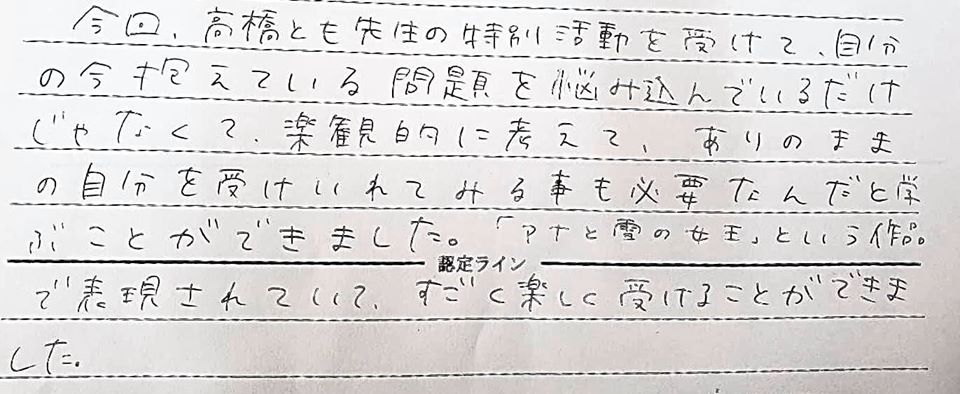 今回、高橋とも先生の特別活動を受けて、自分
の今抱えている問題を悩み込んでいるだけ
じゃなくて、楽観的に考えて、ありのまま
の自分を受けいれてみる事も必要なんだと学
ぶことができました。「アナと雪の女王」という作品。
認定ライン
で表現されていて、すごく楽しく受けることができま
した。